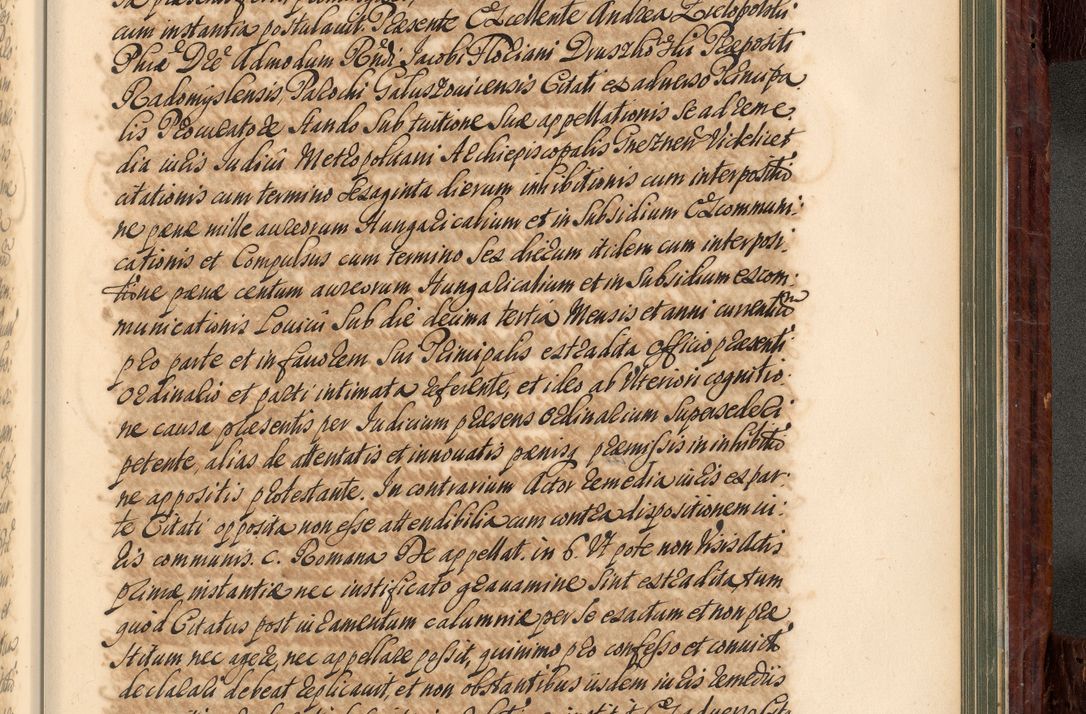 cum instantia postulauit. Præsente Excellente Andrea
Phiæ Dre Admodum Rndi Jacobi Floriani Præpositi
Radomyslensis, Parochi Galuszouicensis Citati ex aduerso Principa
lis Procuratore stando sub tuitione suæ appellationis se ad reme
dia iuris Iudicii Metropolitani Archiepiscopalis Gneznen Videlicet
citationis cum termino sexaginta dierum inhibitionis cum interpositio
ne pænæ mille aureorum Hungaricalium et in subsidium Excommuni:
cationis et Compulsus cum termino sex dierum itidem cum interposi:
tione pænæ centum aureorum Hungaricalium et in subsidium excom:
municationis Louicii sub die decima tertia Mensis et anni currentium
pro parte et in fauorem sui Principalis extradita officio præsenti
Ordinario et parti intimata referente, et ideo ab Vlteriori cognitio:
ne causæ præsentis per Iudicium præsens Ordinarium supersederi
petente, alias de attentatis et innouatis pænisq præmissis in inhibitio
ne appositis protestante. In contrarium Actor remedia iuris ex par:
te Citati opposita non esse attendibilia cum contra dispositionem iu:
ris communis. C. Romana De appellat. in 6. Vt pote non visis Actis
primæ instantiæ nec iustificato grauamine sint extradita, tum
quod Citatus post iuramentum calumniæ per se exactum et non præ
stitum nec agere, nec appellare possit, quinimo pro confesso et conuicto
declarari debeat replicauit, et non obstantibus iisdem iuris remediis